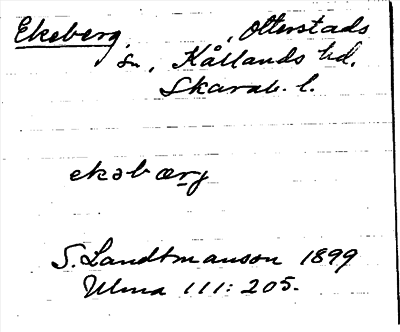 Ekeberg. , Otterstads
sn., Kållands hd.
Skarab. l.
ekəbærg
S. Landtmanson 1899
Ulma 111:205.